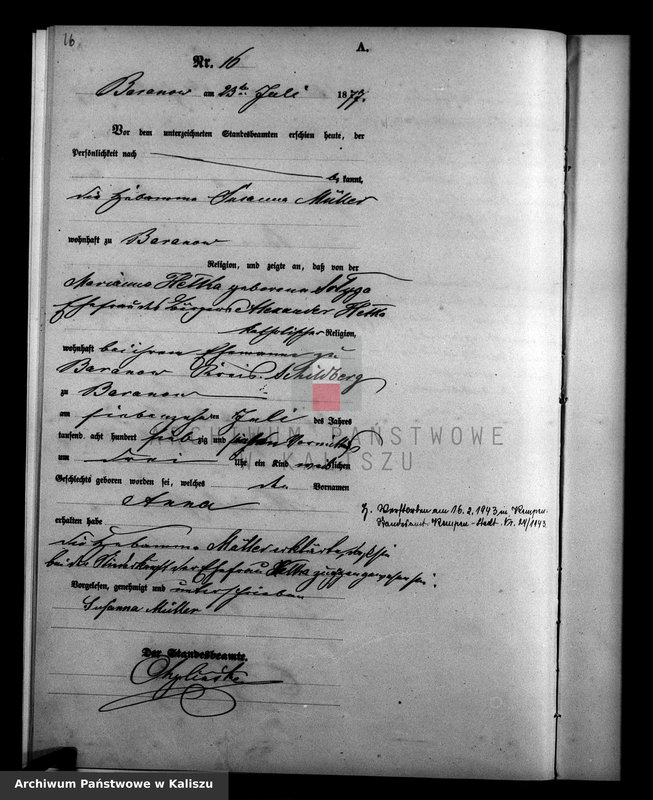 16
A.
Nr. 16
Baranow am 23ten Juli 1877.
Vor dem unterzeichneten Standesbeamten erschien heute, der
Persönlichkeit nach
be kannt,
die Hebamme Susanna Müller
wohnhaft zu Baranow
Religion, und zeigte an, daß von der
Marianna Hettka geborene
Ehefrau des Bürgers Alexander Hettka
katholischer Religion,
wohnhaft bei ihrem Ehemanne zu
Baranow Kreis Schildberg
zu Baranow
am siebenzehnten Juli des Jahres
tausend acht hundert siebzig und sieben Vormittags
um drei Uhr ein Kind weiblichen
Geschlechts geboren worden sei, welches den Vornamen
Anna
erhalten habe
Die Hebamme Müller erklärte, daß sie
bei der Niederkunft der Ehefrau Hettka zugegen gewesen sei.
Vorgelesen, genehmigt und unterschrieben
Susanna Müller
Der Standesbeamte.
Verstorben am 16.2.1943 in Kempen.
Standesamt Kempen-Stadt Nr. 24/1943
ARCHIWUM PAŃSTWOWE
W KALISZU
Archiwum Państwowe w Kaliszu